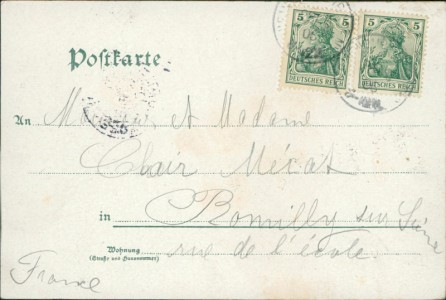 5 5
DEUTSCHES REICH DEUTSCHES REICH
Postkarte
An Monsieur et Madame
Clair Mécat
in Romilly sur Seine
Wohnung
(Straße und Hausnummer)
rue de l'école
France